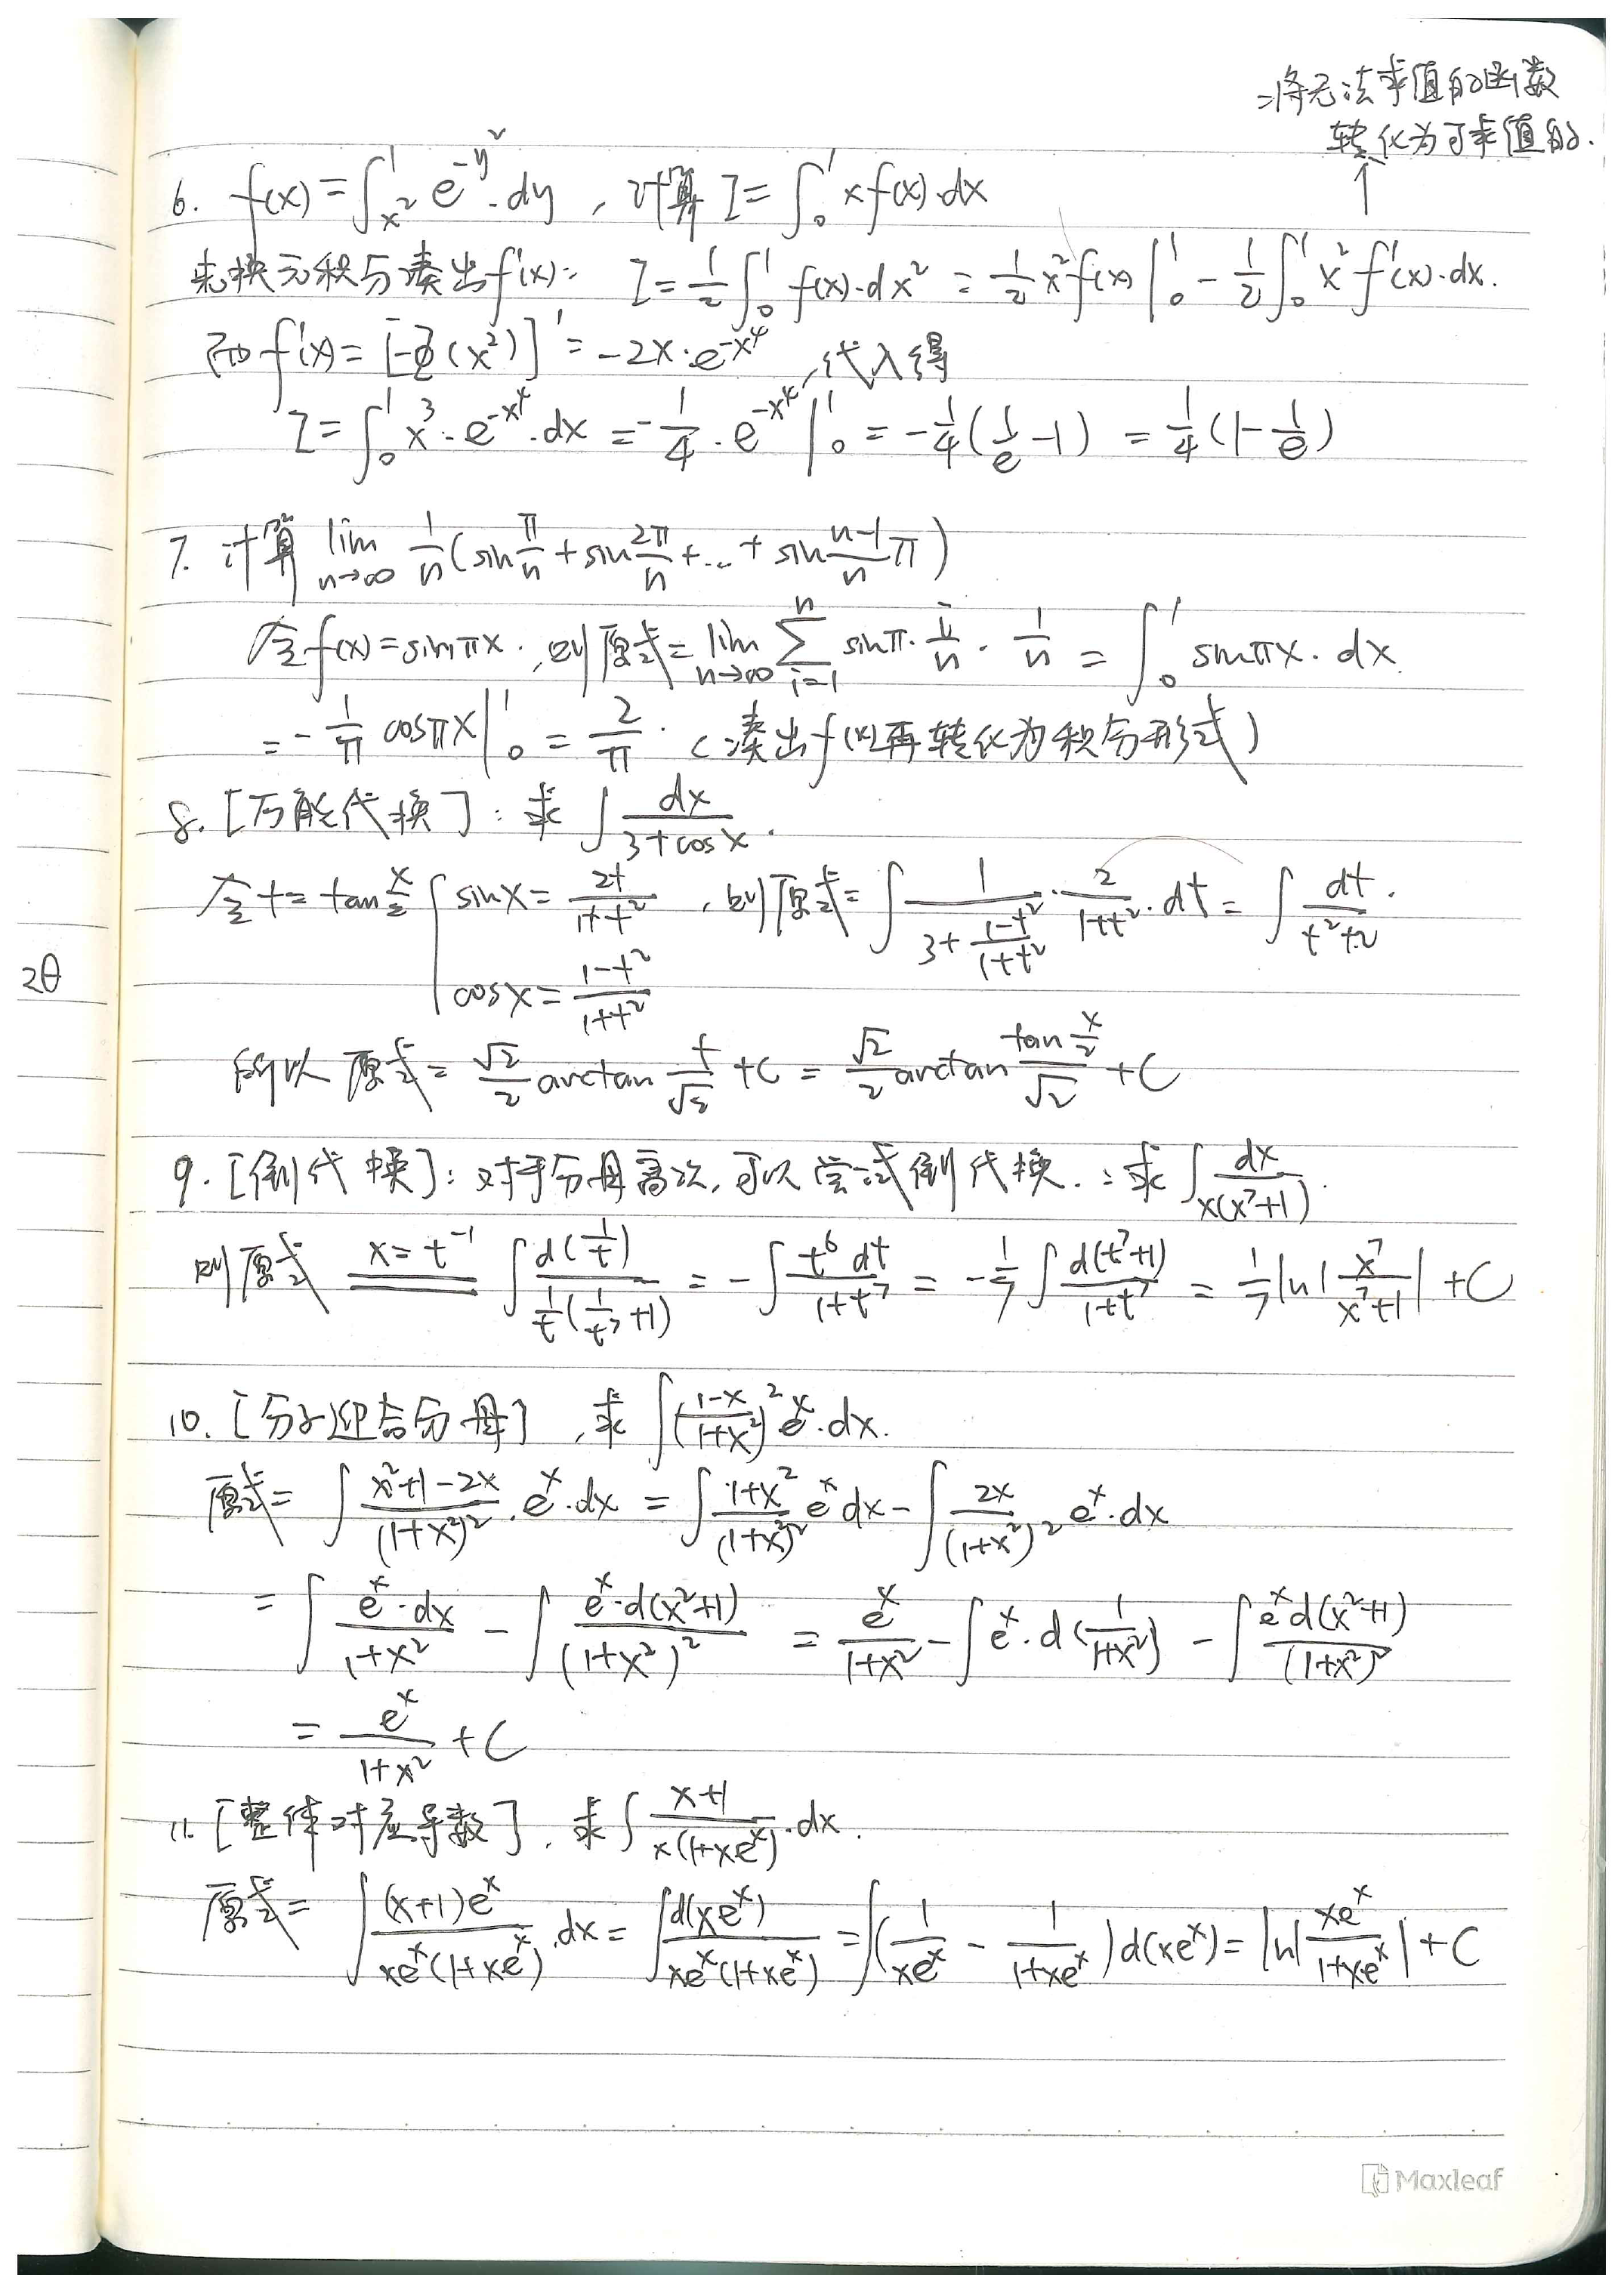 =将无法求值的函数
转化为可求值的.
↑
6. f(x)=∫_{x²}^{1} e^{-y²}·dy , 计算 I=∫_0^1 xf(x)·dx
换元积分凑出f'(x): I=1/2∫_0^1 f(x)·dx² = 1/2 x²f(x)|_0^1 - 1/2∫_0^1 x²f'(x)·dx.
而f'(x)=[-Φ(x²)]'=-2x·e^{-x⁴}, 代入得
I=∫_0^1 x³·e^{-x⁴}·dx = -1/4·e^{-x⁴}|_0^1 = -1/4(1/e-1) = 1/4(1-1/e)
7. 计算 lim_{n→∞} 1/n(sin π/n + sin 2π/n +..+ sin (n-1)/n π)
令f(x)=sinπx., 则原式=lim_{n→∞} ∑_{i=1}^{n} sinπ·i/n · 1/n = ∫_0^1 sinπx·dx.
=-1/π cosπx|_0^1 = 2/π. (凑出f(x)再转化为积分形式)
8. [万能代换]: 求 ∫dx/(3+cosx).
令t=tan x/2 { sinx=2t/(1+t²) , 则原式=∫ 1/(3+(1-t²)/(1+t²)) · 2/(1+t²)·dt = ∫dt/(t²+2).
cosx=(1-t²)/(1+t²)
2θ
所以 原式=√2/2 arctan t/√2 +C = √2/2 arctan (tan x/2)/√2 +C
9. [倒代换]: 对于分母高次, 可以尝试倒代换.: 求∫dx/(x(x⁷+1)).
则原式 x=t⁻¹ ∫d(1/t)/(1/t(1/t⁷+1)) = -∫t⁶dt/(1+t⁷) = -1/7∫d(t⁷+1)/(1+t⁷) = 1/7 ln|x⁷/(x⁷+1)| +C
10. [分子迎合分母], 求∫((1-x)/(1+x²))²e^x·dx.
原式=∫(x²+1-2x)/(1+x²)²·e^x·dx = ∫(1+x²)/(1+x²)² e^x dx - ∫2x/(1+x²)² e^x·dx
= ∫e^x·dx/(1+x²) - ∫e^x·d(x²+1)/(1+x²)² = e^x/(1+x²) - ∫e^x·d(1/(1+x²)) - ∫e^x d(x²+1)/(1+x²)²
= e^x/(1+x²) +C
11. [整体对应导数], 求∫(x+1)/(x(1+xe^x))·dx.
原式=∫(x+1)e^x/(xe^x(1+xe^x))·dx = ∫d(xe^x)/(xe^x(1+xe^x)) = ∫(1/(xe^x) - 1/(1+xe^x))d(xe^x) = ln|xe^x/(1+xe^x)|+C
Maxleaf